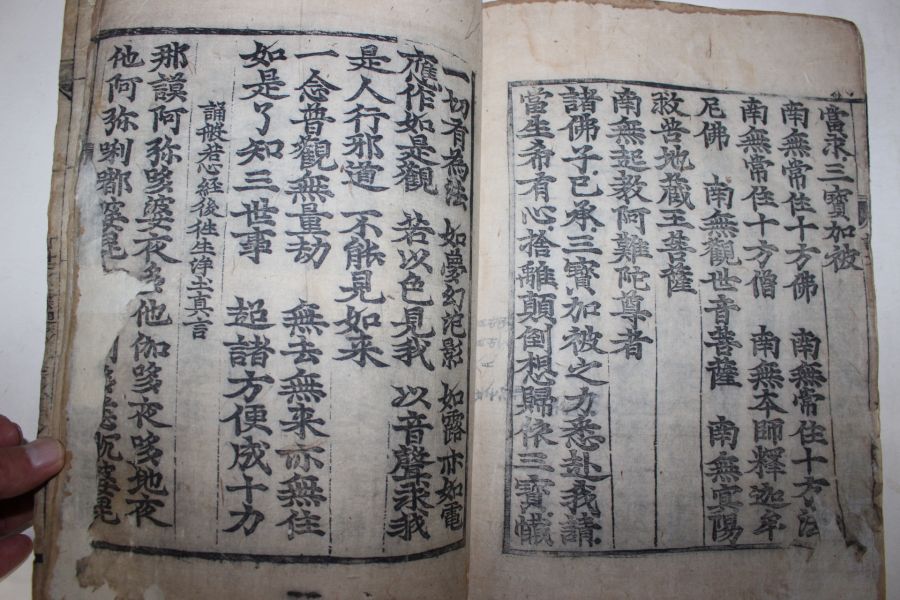 當求三寶加被
南無常住十方佛 南無常住十方法
南無常住十方僧 南無本師釋迦牟
尼佛 南無觀世音菩薩 南無冥陽
救苦地藏王菩薩
南無起教阿難陀尊者
諸佛子已承三寶加被之力悉赴我請
當生希有心捨離顛倒想歸依三寶懺
一切有為法 如夢幻泡影 如露亦如電
應作如是觀 若以色見我 以音聲求我
是人行邪道 不能見如来
一念普觀無量劫 無去無来亦無住
如是了知三世事 超諸方便成十力
誦般若心経後徃生淨土真言
那謨阿弥哆婆夜哆他伽哆夜哆地夜
他阿弥唎都婆毘